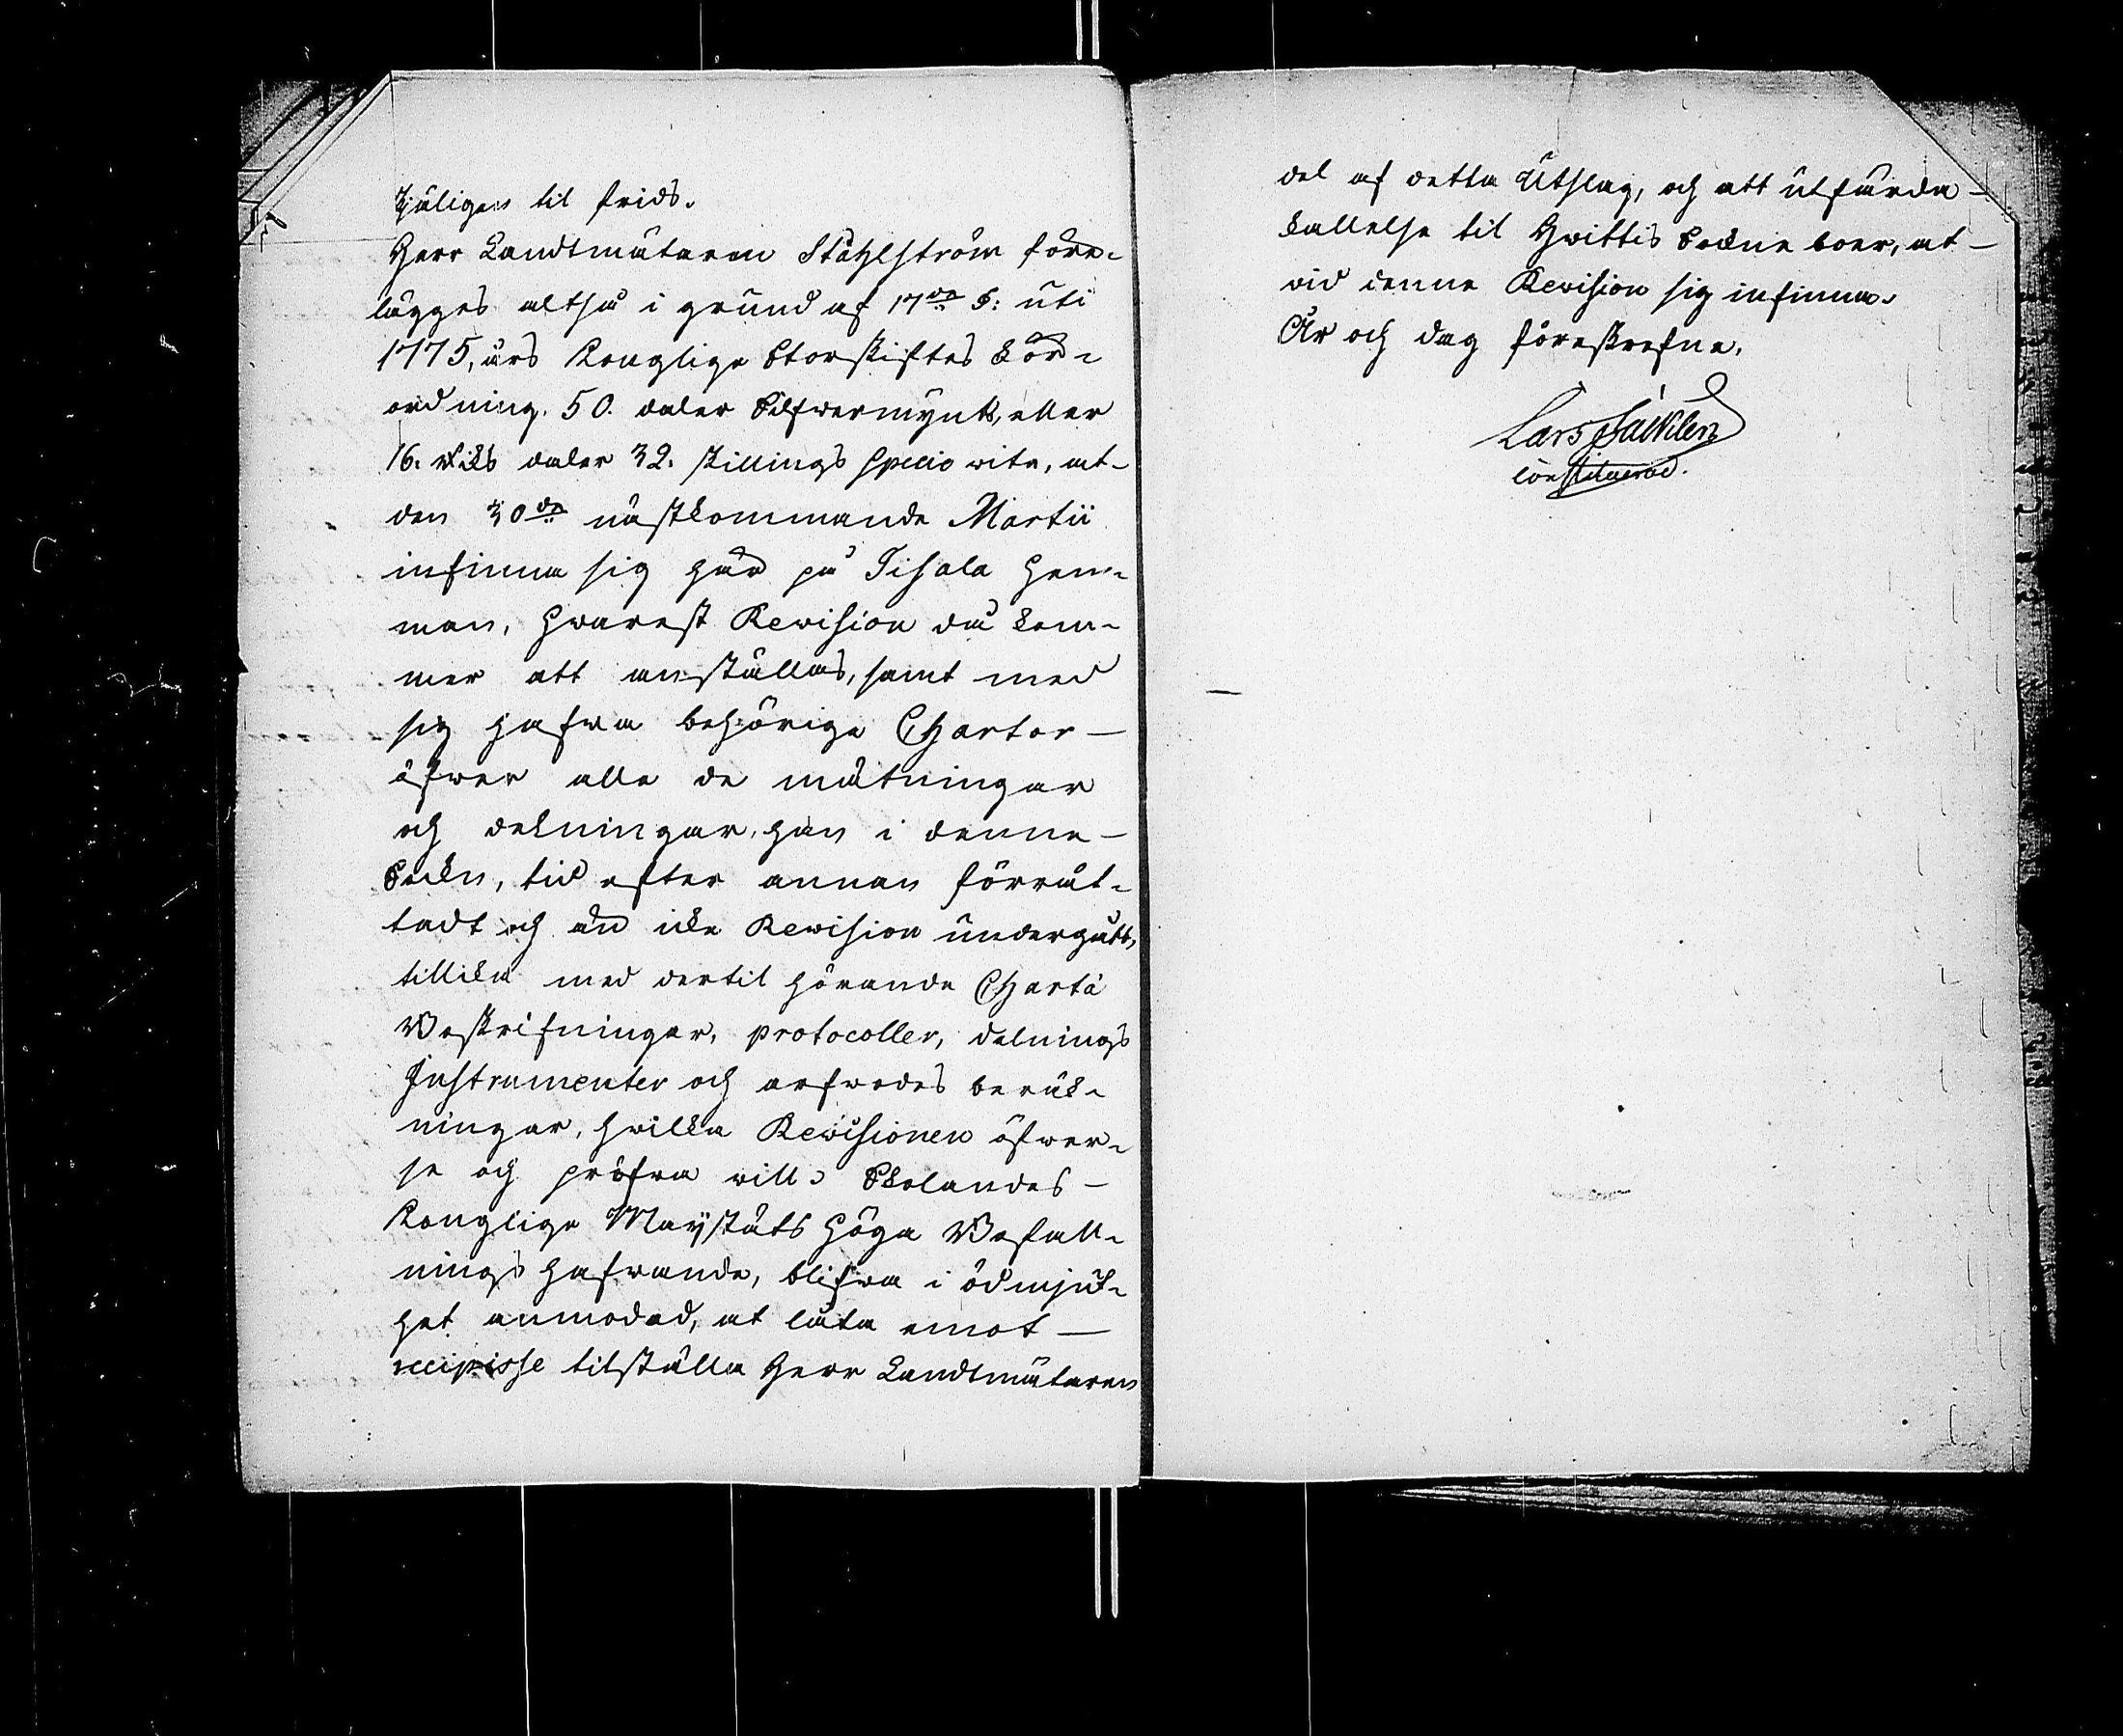 tjäligen til frids.
Herr Landtmätaren Ståhlström före-
lägges altså i grund af 17de §: uti
1775, års Konglige Storskiftes För-
ordning. 50. daler Silfwermynts, eller
16. Riks daler 32. skillings Specie wite, at-
den 30de nästkommande Martii
infinna sig här på Tisala Hem-
man, hwarest Revision då kom-
mer att anställas, samt med
sig hafwa behörige Chartor-
öfwer alle de mätningar
och delningar, han i denne-
Sockn, tid efter annan förrät-
tadt och än icke Revision undergått,
tillika med dertil hörande Charta
Beskrifningar, protocoller, delnings
Instrumenter och arfwodes beräk-
ningar, hvilka Revisionen öfwer-
se och pröfwa will. Skolandes-
Konglige Maijstäts Höga Befall-
nings hafwande, blifwa i ödmjuk-
het anmodad, at låta emot-
recipisse tilställa Herr Landtmätaren
del af detta Utslag, och att utfärda-
kallelse til Hvittis Sockne boer, at-
vid denne Revision sig infinna.
År och dag föreskrefne.
Lars Fäldén
Constituerad.